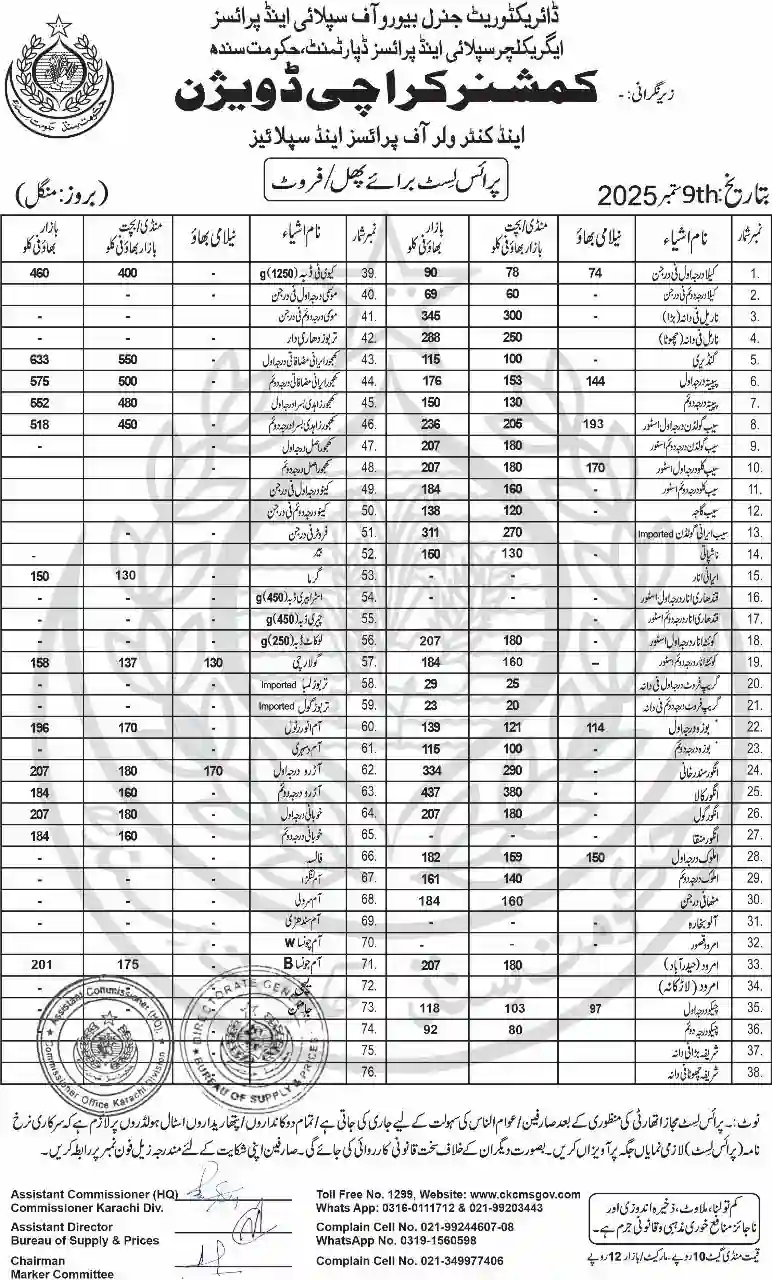 ڈائریکٹوریٹ جنرل بیورو آف سپلائی اینڈ پرائسز
ایگریکلچر سپلائی اینڈ پرائسز ڈپارٹمنٹ، حکومت سندھ
زیر نگرانی: -
کمشنر کراچی ڈویژن
اینڈ کنٹرولر آف پرائسز اینڈ سپلائیز
پرائس لسٹ برائے پھل / فروٹ
تاریخ: 9th ستمبر 2025
(بروز: منگل)
نمبر شمار نام اشیاء نیلامی بھاؤ منڈی / بچت بازار بھاؤ فی کلو بازار بھاؤ فی کلو
1. کیلا درجہ اول فی درجن 74 78 90
2. کیلا درجہ دوئم فی درجن - 60 69
3. ناریل فی دانہ (بڑا) - 300 345
4. ناریل فی دانہ (چھوٹا) - 250 288
5. گنڈیری - 100 115
6. پپیتہ درجہ اول 144 153 176
7. پپیتہ درجہ دوئم - 130 150
8. سیب گولڈن درجہ اول اسٹور 193 205 236
9. سیب گولڈن درجہ دوئم اسٹور - 180 207
10. سیب کلو درجہ اول اسٹور 170 180 207
11. سیب کلو درجہ دوئم اسٹور - 160 184
12. سیب گاچہ - 120 138
13. سیب ایرانی گولڈن Imported - 270 311
14. ناشپاتی - 130 150
15. ایرانی انار - - -
16. قندھاری انار درجہ اول اسٹور - - -
17. قندھاری انار درجہ دوئم اسٹور - - -
18. کوئٹہ انار درجہ اول اسٹور - 180 207
19. کوئٹہ انار درجہ دوئم اسٹور – 160 184
20. گریپ فروٹ درجہ اول فی دانہ - 25 29
21. گریپ فروٹ درجہ دوئم فی دانہ - 20 23
22. خربوزہ درجہ اول 114 121 139
23. خربوزہ درجہ دوئم - 100 115
24. انگور سندر خانی - 290 334
25. انگور کالا - 380 437
26. انگور گول - 180 207
27. انگور منقا - - -
28. املوک درجہ اول 150 159 182
29. املوک درجہ دوئم - 140 161
30. مٹھا فی درجن - 160 184
31. آلو بخارہ - - -
32. امرود قصور - - -
33. امرود (حیدرآباد) - 180 207
34. امرود (لاڑکانہ) - - -
35. چیکو درجہ اول 97 103 118
36. چیکو درجہ دوئم - 80 92
37. شریفہ بڑا فی دانہ - - -
38. شریفہ چھوٹا فی دانہ - - -
نمبر شمار نام اشیاء نیلامی بھاؤ منڈی / بچت بازار بھاؤ فی کلو بازار بھاؤ فی کلو
39. کیوی فی ڈبہ (1250)g - 400 460
40. موسمی درجہ اول فی درجن - - -
41. موسمی درجہ دوئم فی درجن - - -
42. تربوز دھاری دار - - -
43. کھجور ایرانی مضافاتی درجہ اول - 550 633
44. کھجور ایرانی مضافاتی درجہ دوئم - 500 575
45. کھجور زاہدی بسرا درجہ اول - 480 552
46. کھجور زاہدی بسرا درجہ دوئم - 450 518
47. کھجور اصل درجہ اول -
48. کھجور اصل درجہ دوئم - - -
49. کینو درجہ اول فی درجن
50. کینو درجہ دوئم فی درجن
51. فروٹر فی درجن - -
52. -
53. گرما - 130 150
54. اسٹرابیری ڈبہ (450)g - - -
55. چیری ڈبہ (450)g
56. لوکاٹ ڈبہ (250)g - - -
57. گولارچی 130 137 158
58. تربوز لمبا Imported - - -
59. تربوز گول Imported - - -
60. آم انور رٹول - 170 196
61. آم دسہری - - -
62. آڑو درجہ اول 170 180 207
63. آڑو درجہ دوئم - 160 184
64. خوبانی درجہ اول - 180 207
65. خوبانی درجہ دوئم - 160 184
66. فالسہ - - -
67. آم لنگڑا - - -
68. آم سرولی - - -
69. آم سندھڑی - - -
70. آم چونسا W - - -
71. آم چونسا B - 175 201
72. لیچی - -
73. جامن - -
74.
75.
76.
Assistant Commissioner (HQ).
Commissioner Office Karachi Division
DIRECTORATE GENERAL
BUREAU OF SUPPLY & PRICES
نوٹ:۔ پرائس لسٹ مجاز اتھارٹی کی منظوری کے بعد صارفین / عوام الناس کی سہولت کے لیے جاری کی جاتی ہے / تمام دوکانداروں / پتھاریداروں اسٹال ہولڈروں پر لازم ہے کہ سرکاری نرخ
نامہ (پرائس لسٹ) لازمی نمایاں جگہ پر آویزاں کریں۔ بصورت دیگر ان کے خلاف سخت قانونی کارروائی کی جائے گی۔ صارفین اپنی شکایت کے لئے مندرجہ ذیل فون نمبر پر رابطہ کریں۔
Assistant Commissioner (HQ)
Commissioner Karachi Div.
Assistant Director
Bureau of Supply & Prices
Chairman
Marker Committee
Toll Free No. 1299, Website: www.ckcmsgov.com
Whats App: 0316-0111712 & 021-99203443
Complain Cell No. 021-99244607-08
WhatsApp No. 0319-1560598
Complain Cell No. 021-349977406
کم تولنا، ملاوٹ، ذخیرہ اندوزی اور
ناجائز منافع خوری مذہبی و قانونی جرم ہے۔
قیمت منڈی گیٹ 10 روپے۔ مارکیٹ / بازار 12 روپے